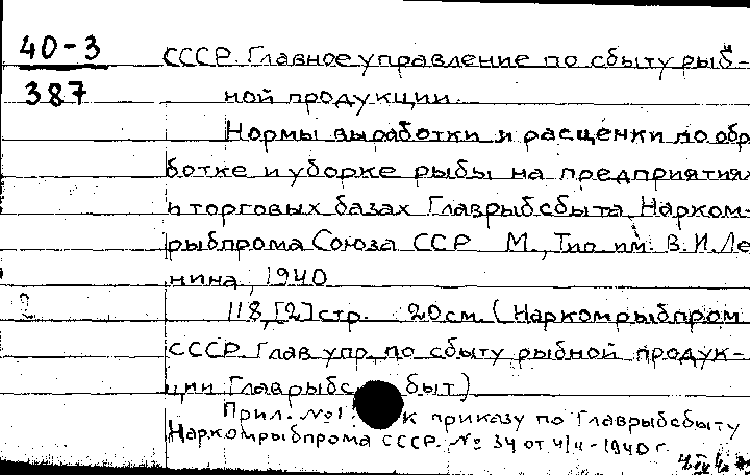 40-3
387
СССР. Главное управление по сбыту рыб-
ной продукции.
Нормы выработки и расценки по обр
ботке и уборке рыбы на предприятия
и торговых базах Главрыбсбыта Нарком-
рыбпрома Союза ССР М., Тип им. В. И. Ле
нина, 1940
118, [2] стр. 20 см. (Наркомрыбпром
СССР. Глав упр. по сбыту рыбной продук-
ции Главрыбс быт)
Прил. №1 к приказу по Главрыбсбыту
Наркомрыбпрома СССР. № 34 от 4/IV-1940 г.
2